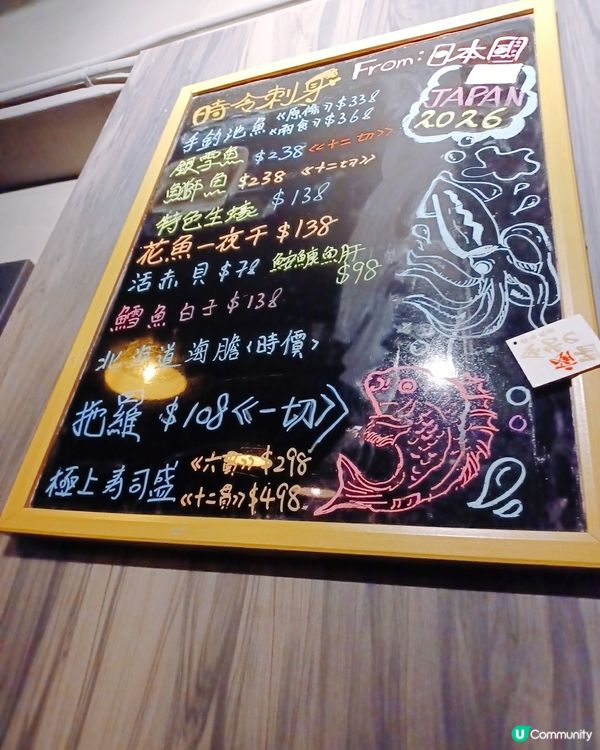 時令刺身
From: 日本國
JAPAN
2026
手釣池魚《原條》$338
《兩食》$368
銀雪魚 $238 《十二切》
鰤魚 $238 《十二切》
特色生蠔 $138
花魚一夜干 $138
活赤貝 $78
鮟鱇魚肝 $98
鱈魚白子 $138
北海道海膽〈時價〉
拖羅 $108《一切》
極上寿司盛《六貫》$298
《十二貫》$498
U Community